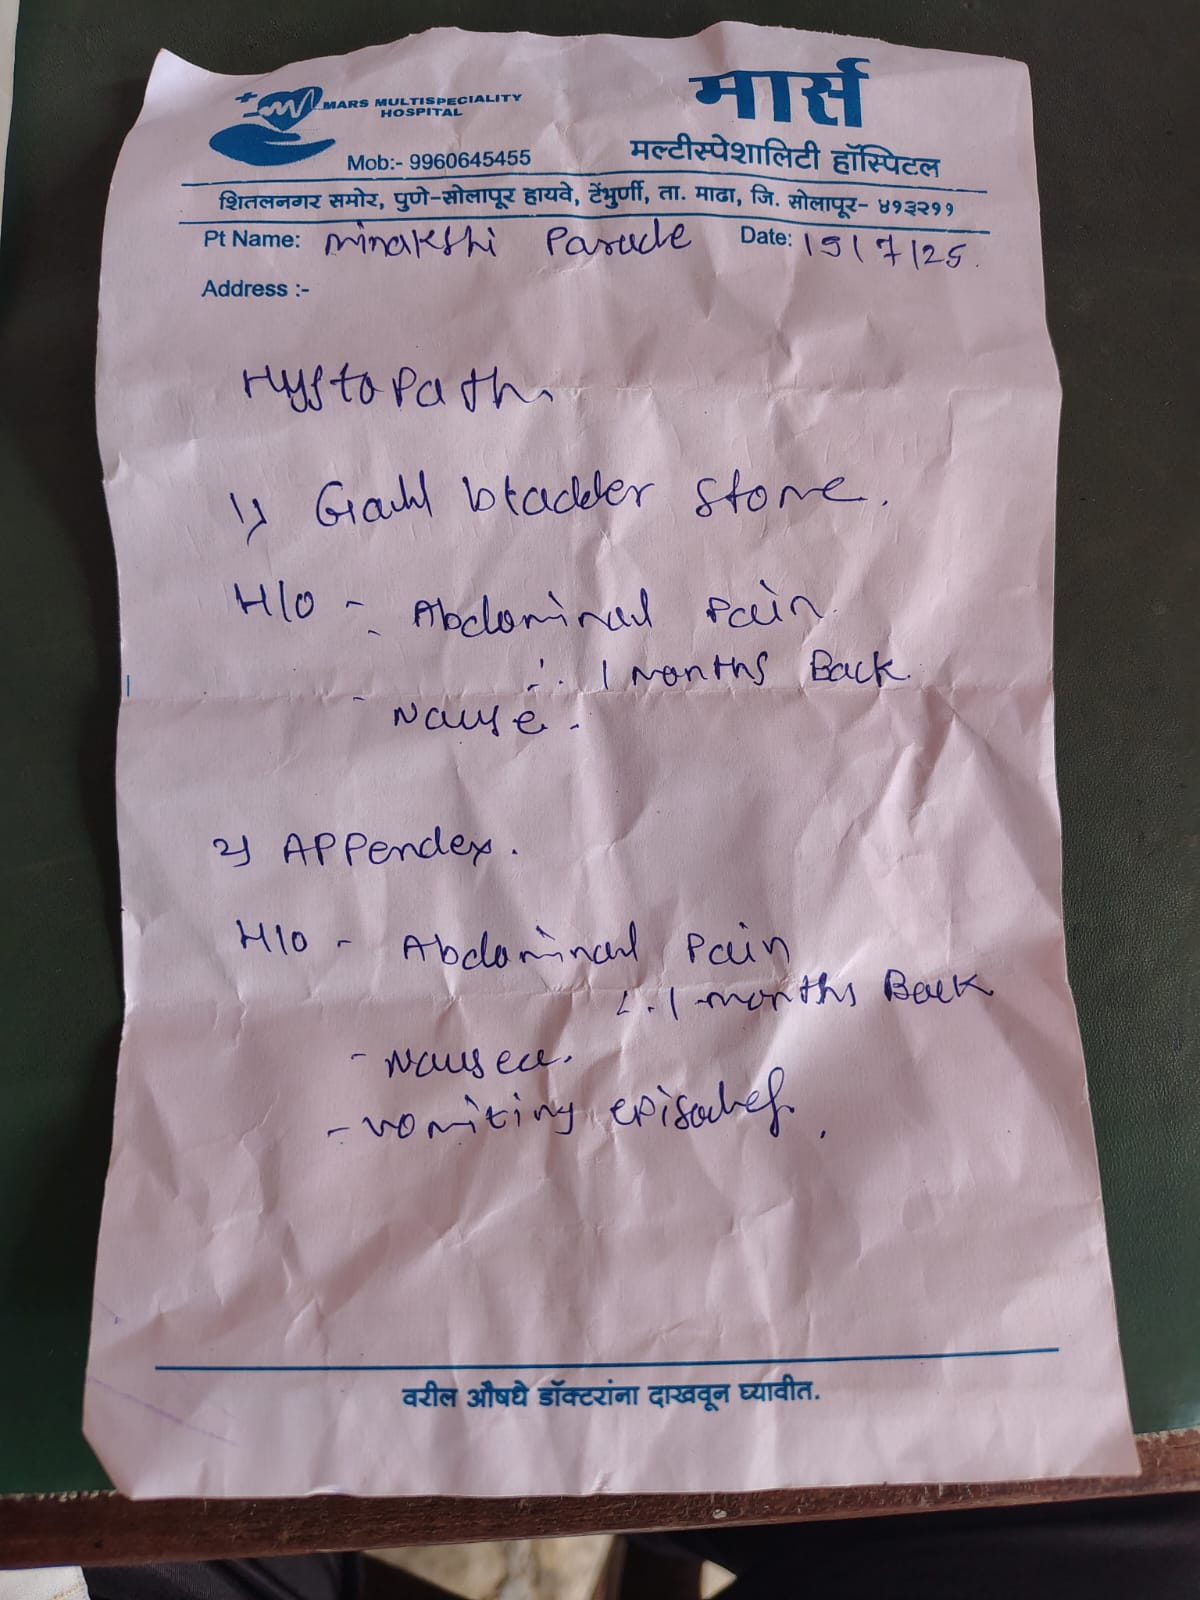 MARS MULTISPECIALITY
HOSPITAL
Mob:- 9960645455
मार्स
मल्टीस्पेशालिटी हॉस्पिटल
शितलनगर समोर, पुणे-सोलापूर हायवे, टेंभुर्णी, ता. माढा, जि. सोलापूर- ४१३२११
Pt Name: Minakshi Parade Date: 19/7/25.
Address :-
HystoPath.
1) Gaull bladder stone.
H/O - Abdominal Pain.
∴ 1 months Back.
- Nause.
2) APPendex.
H/O - Abdominal Pain
∴ 1 months Back
- Nausea.
- vomiting episodes.
वरील औषधे डॉक्टरांना दाखवून घ्यावीत.